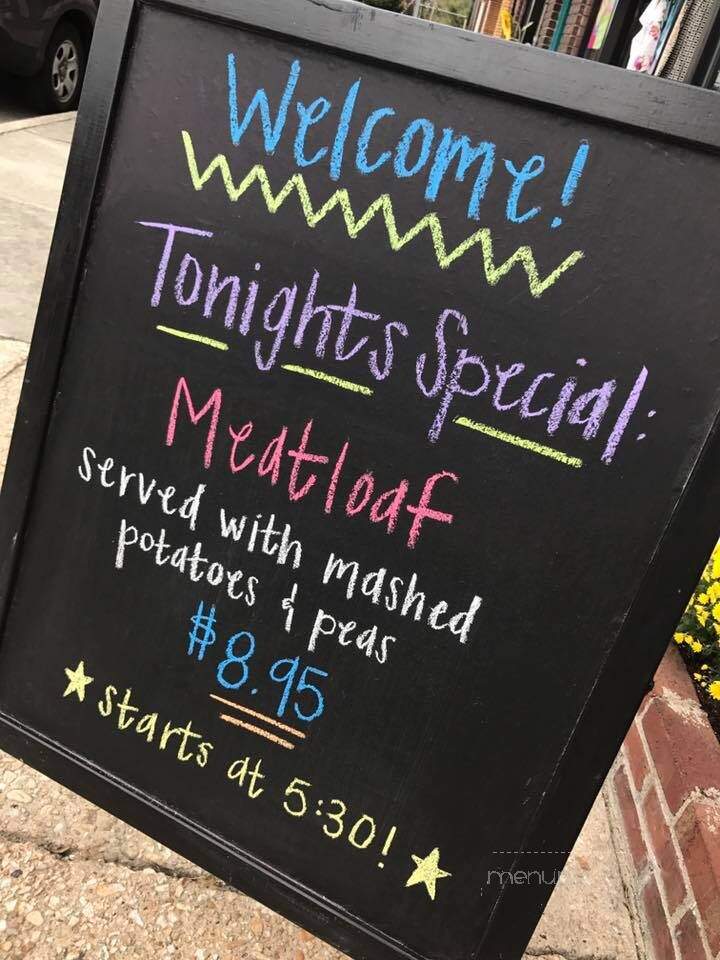 Welcome!
Tonights Special:
Meatloaf
served with mashed
potatoes & peas
$8.95
starts at 5:30!
menu